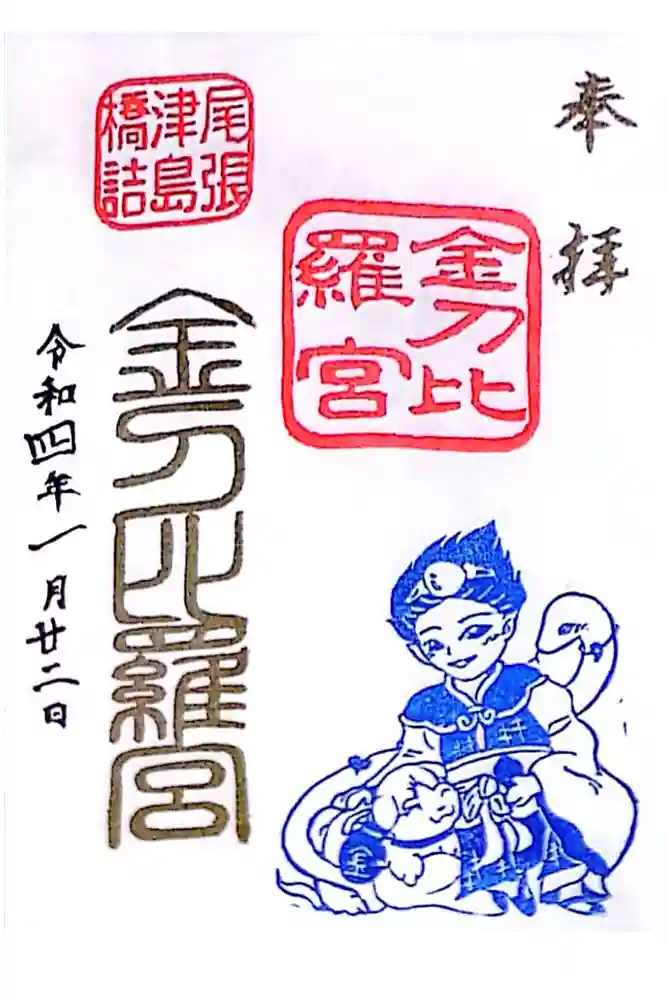 奉拝
金刀比
羅宮
尾張
津島
橋詰
金刀比羅宮
令和四年一月廿二日
金